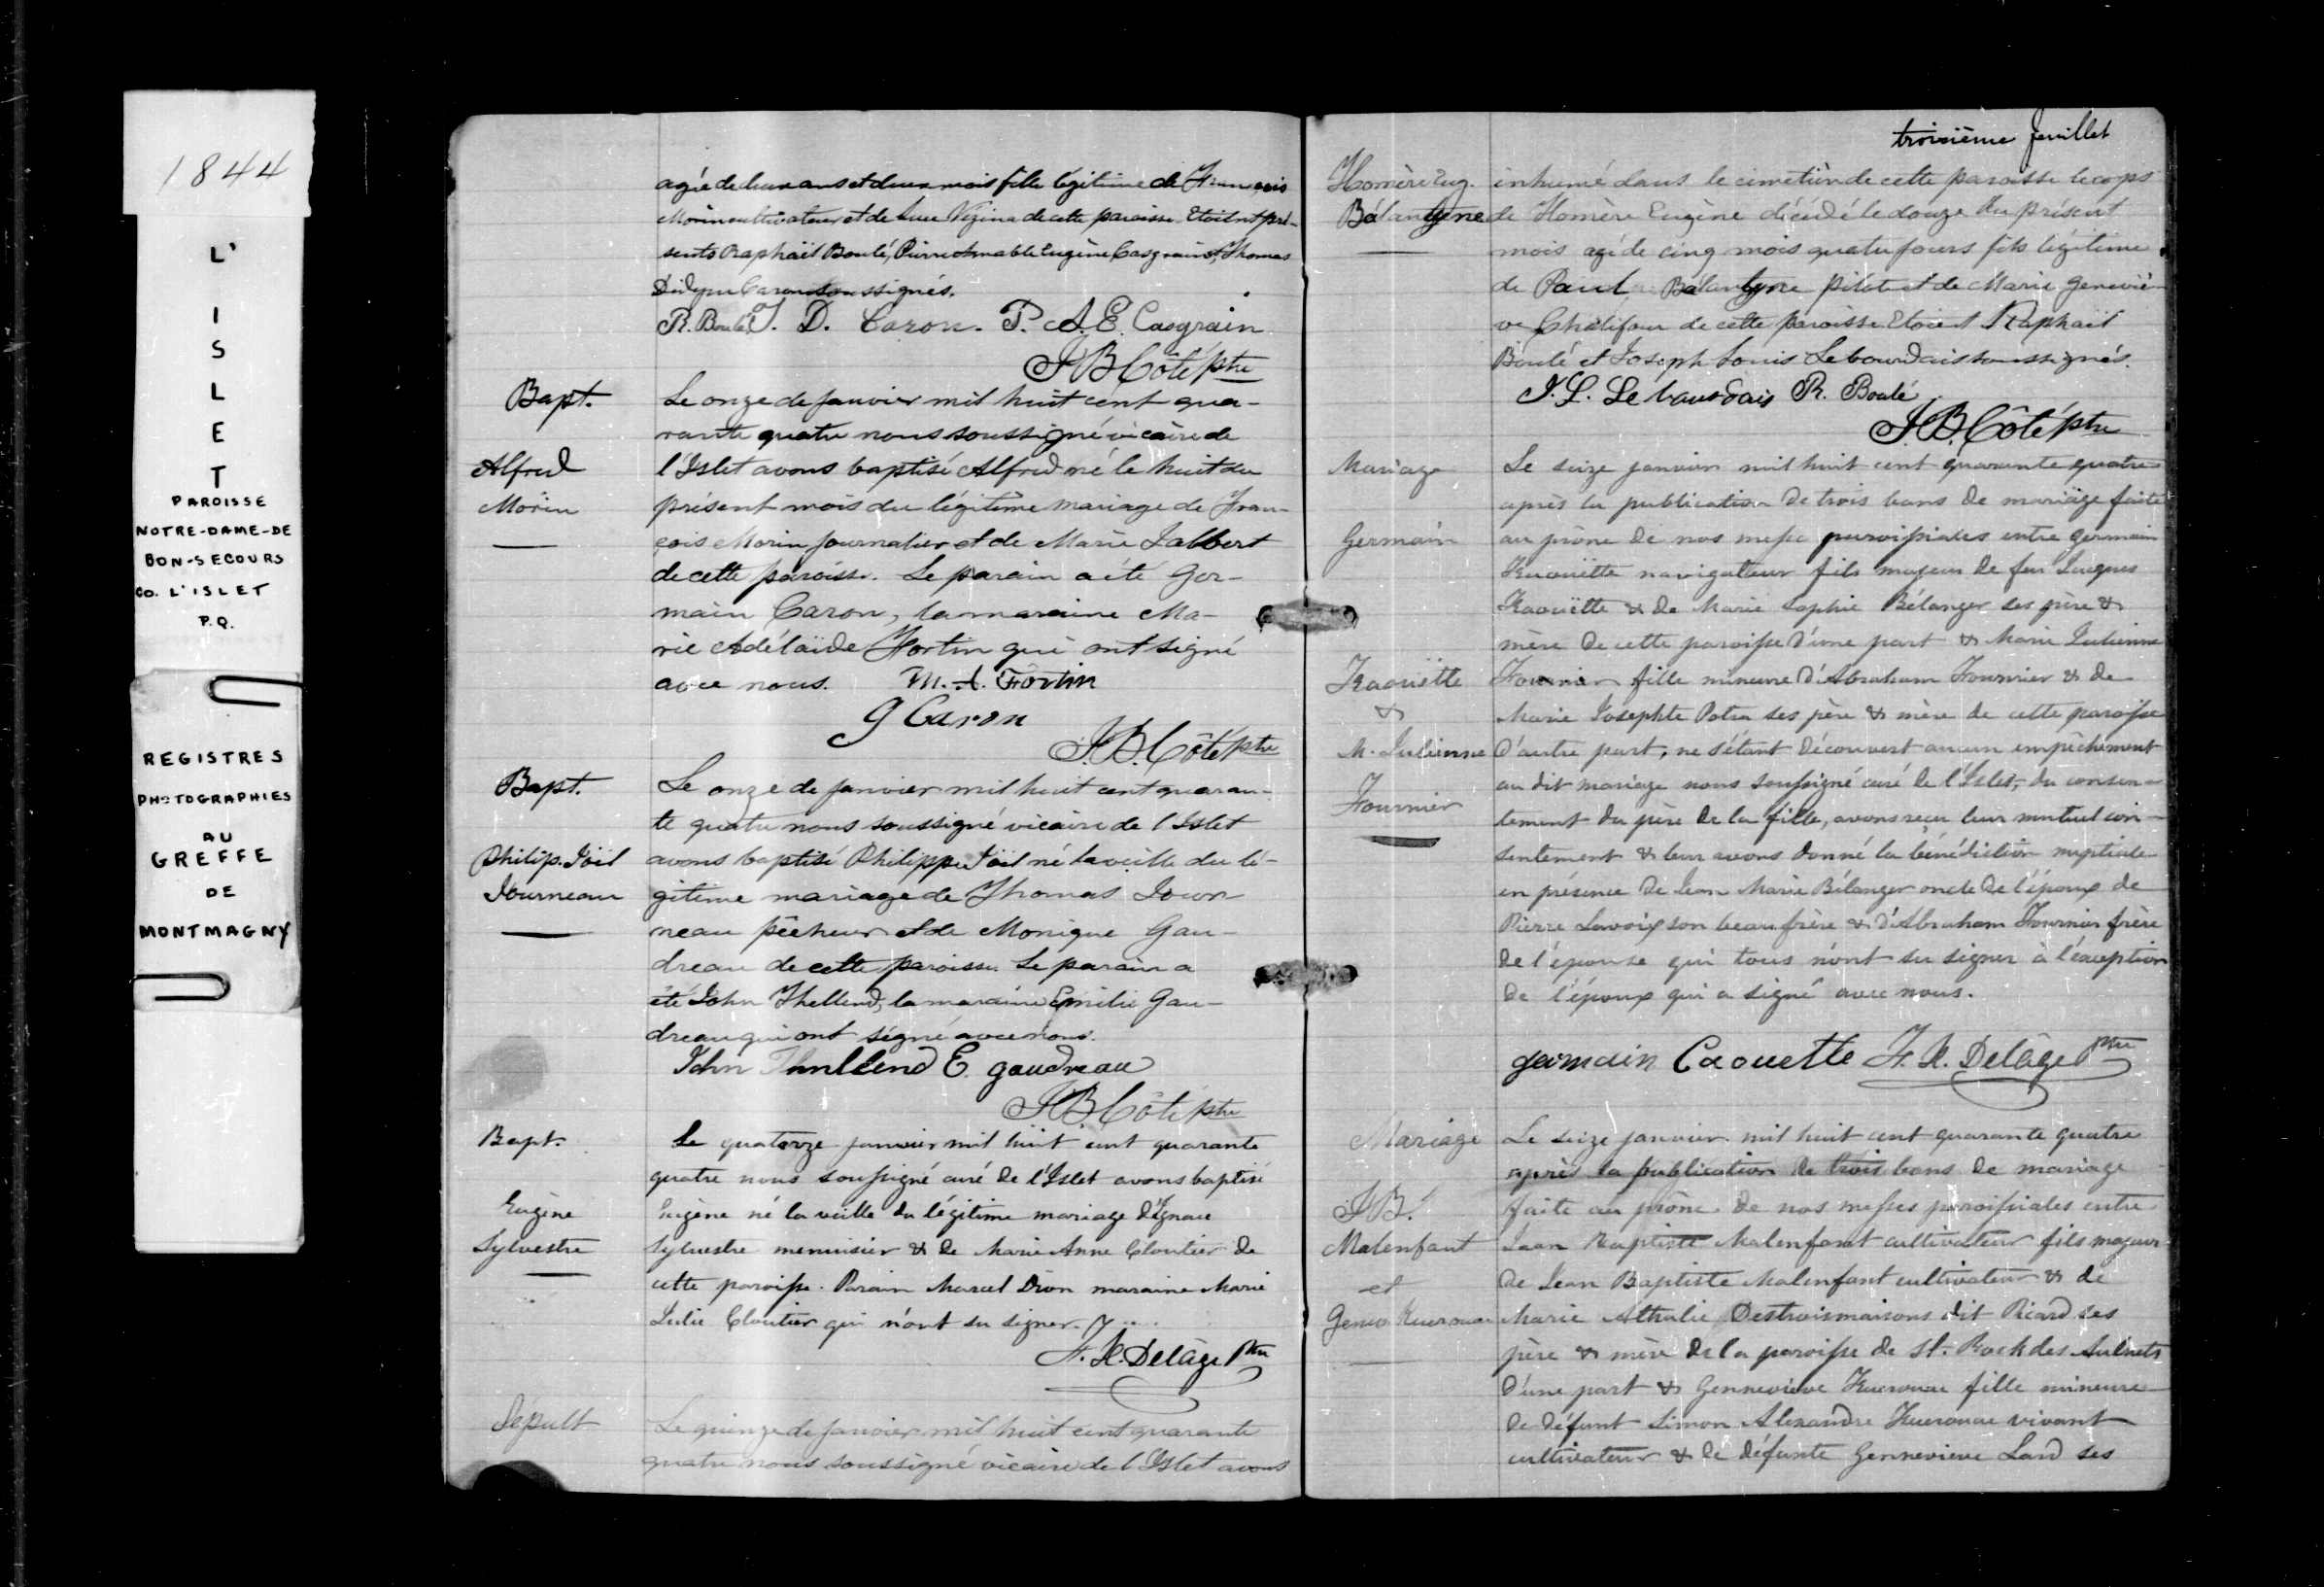 1844
L'
I
S
L
E
T
PAROISSE
NOTRE-DAME-DE
BON-SECOURS
CO. L'ISLET
P.Q.
REGISTRES
PHOTOGRAPHIES
AU
GREFFE
DE
MONTMAGNY
agée de deux ans et deux mois fille légitime de François
Morin cultivateur et de Luce Vézina de cette paroisse. Etoient pré-
sents Raphaël Boulé, Pierre Amable Eugène Casgrain et Thomas
Didyme Caron soussignés.
R. Boulé, T. D. Caron. P. A. E. Casgrain
J B Côté ptre
Bapt.
Alfred
Morin
Le onze de janvier mil huit cent qua-
rante quatre nous soussigné vicaire de
l'Islet avons baptisé Alfred né le huit du
présent mois du légitime mariage de Fran-
çois Morin journalier et de Marie Jalbert
de cette paroisse. Le parain a été Ger-
main Caron, la maraine Ma-
rie Adélaïde Fortin qui ont signé
avec nous. M. A. Fortin
G Caron
J. B. Côté ptre
Bapt.
Philip. Joël
Journeau
Le onze de janvier mil huit cent quaran-
te quatre nous soussigné vicaire de l'Islet
avons baptisé Philippe Joël né la veille du lé-
gitime mariage de Thomas Jour
neau pêcheur et de Monique Gau-
dreau de cette paroisse. Le parain a
été John Thellend, la maraine Emilie Gau-
dreau qui ont signé avec nous.
John E. gaudreau
J B Côté ptre
Bapt.
Eugène
Sylvestre
Le quatorze janvier mil huit cent quarante
quatre nous soussigné curé de l'Islet avons baptisé
Eugène né la veille du légitime mariage d'Ignace
Sylvestre menuisier & de Marie Anne Cloutier de
cette paroisse. Parain Marcel Dion maraine Marie
Julie Cloutier qui n'ont su signer.
F. X. Delâge Ptre
Sépult
Le quinze de janvier mil huit cent quarante
quatre nous soussigné vicaire de l'Islet avons
troisième feuillet
Homère Eug.
Balantyne
inhumé dans le cimetière de cette paroisse le corps
de Homère Eugène décédé le douze du présent
mois agé de cinq mois quatre jours fils légitime
de Paul Balantyne pilote et de Marie Geneviè-
ve Chalifour de cette paroisse. Etoient Raphaël
Boulé et Joseph Louis Lebourdais soussignés.
J. L. Lebourdais R. Boulé
J. B. Côté ptre
Mariage
Germain
Kaouëtte
&
M. Julienne
Fournier
Le seize janvier mil huit cent quarante quatre
après la publication de trois bans de mariage faite
au prône de nos messes paroissiales entre Germain
Kaouëtte navigateur fils majeur de feu Jacques
Kaouëtte & de Marie Sophie Bélanger ses père &
mère de cette paroisse d'une part & Marie Julienne
Fournier fille mineure d'Abraham Fournier & de
Marie Josephte Potra ses père & mère de cette paroisse
d'autre part, ne s'étant découvert aucun empêchement
au dit mariage nous soussigné curé de l'Islet, du consen-
tement du père de la fille, avons reçu leur mutuel con-
sentement & leur avons donné la bénédiction nuptiale
en présence de Jean Marie Bélanger oncle de l'époux de
Pierre Lavoix son beau frère & d'Abraham Fournier frère
de l'épouse qui tous n'ont su signer à l'exception
de l'époux qui a signé avec nous.
germain Caouette F. X. Delâge Ptre
Mariage
J B.
Malenfant
et
Genev. Kuerouac
Le seize janvier mil huit cent quarante quatre
après la publication de trois bans de mariage
faite au prône de nos messes paroissiales entre
Jean Baptiste Malenfant cultivateur fils majeur
de Jean Baptiste Malenfant cultivateur & de
Marie Athalie Destroismaisons dit Picard ses
père & mère de la paroisse de St. Roch des Aulnets
d'une part & Genneviève Kuerouac fille mineure
de défunt Simon Alexandre Kuerouac vivant
cultivateur & de défunte Genneviève Lard ses